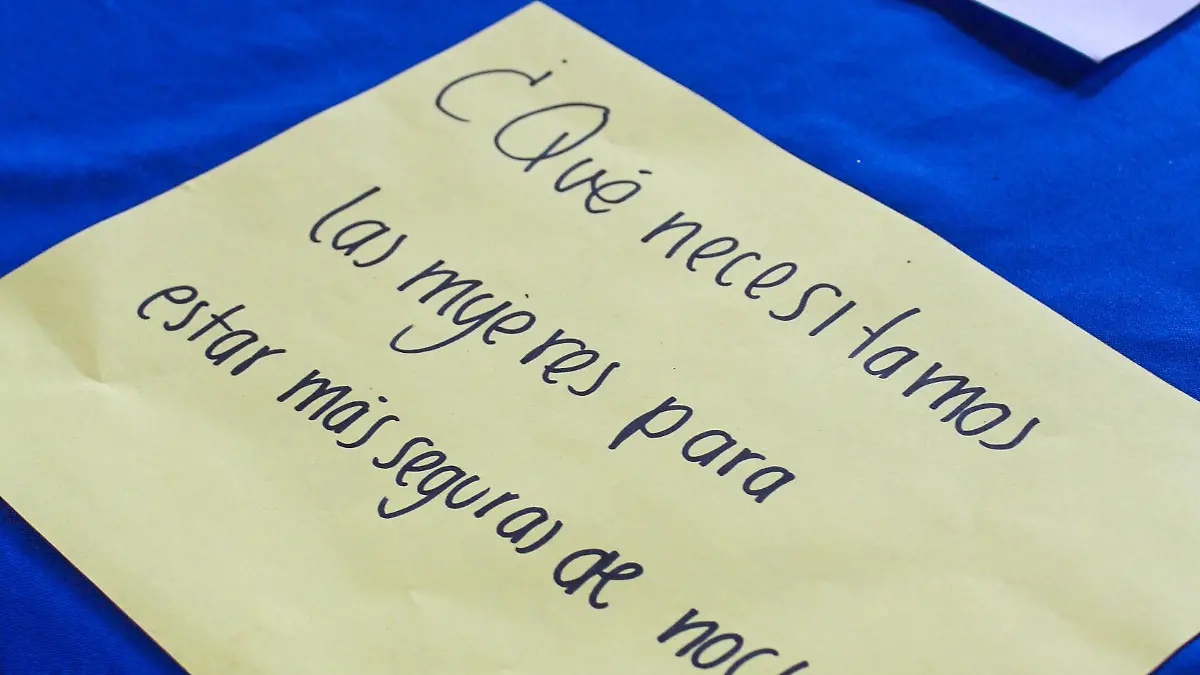 ¿Qué necesitamos
las mujeres para
estar más seguras de